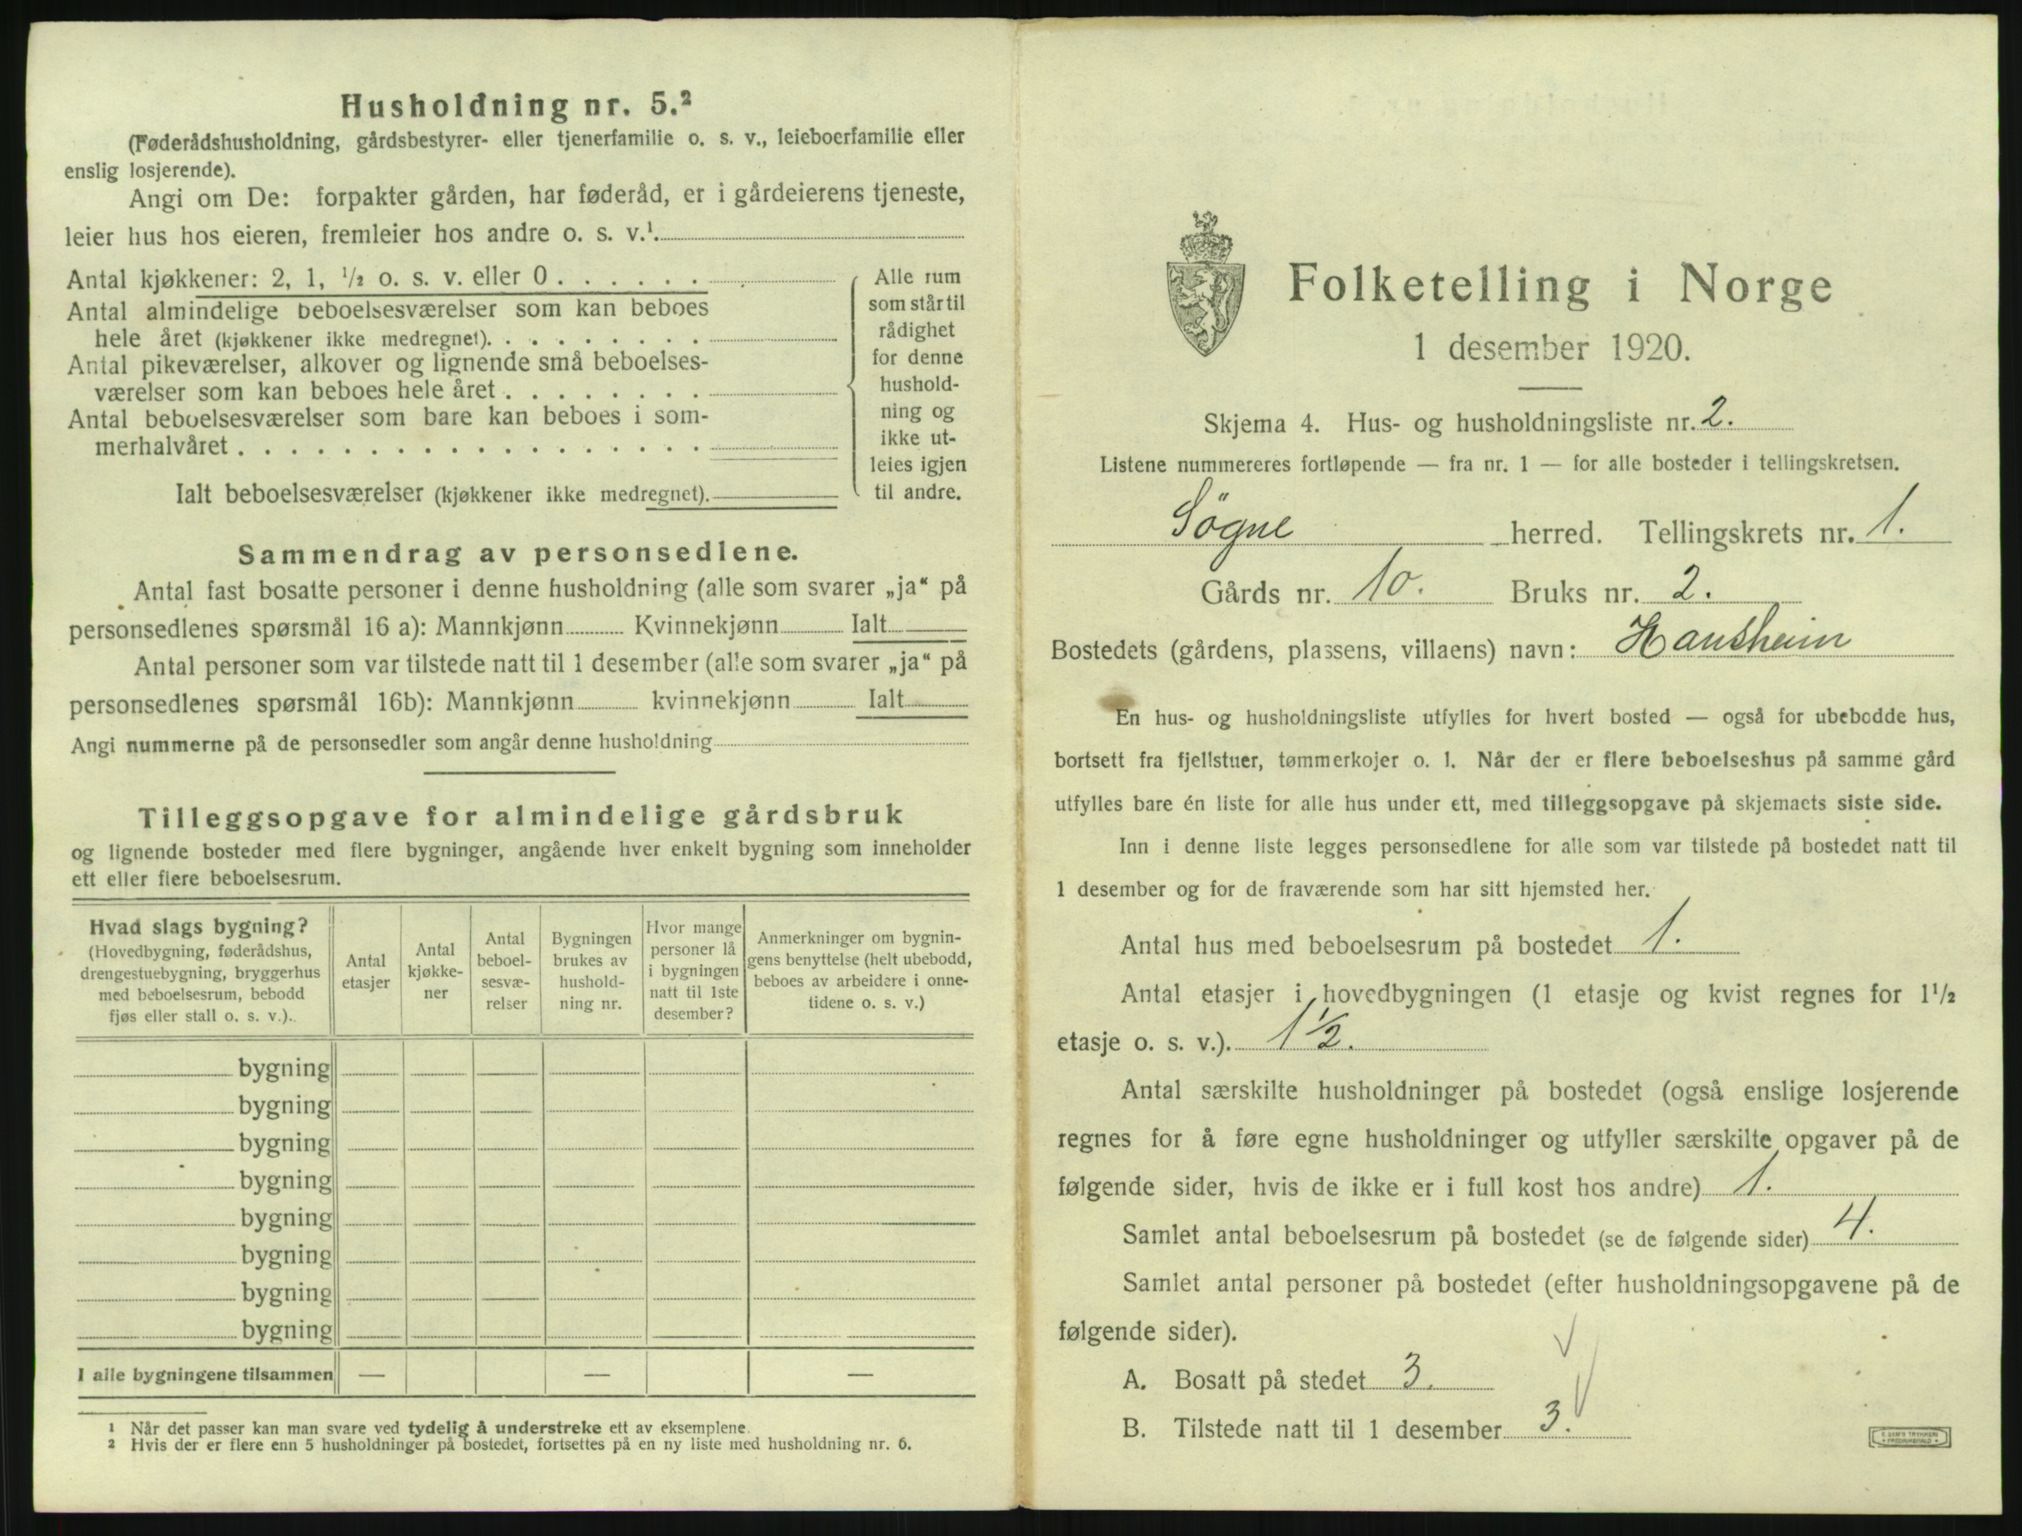 Husholdning nr. 5.²
(Føderådshusholdning, gårdsbestyrer- eller tjenerfamilie o. s. v., leieboerfamilie eller
enslig losjerende).
Angi om De: forpakter gården, har føderåd, er i gårdeierens tjeneste,
leier hus hos eieren, fremleier hos andre o. s. v.¹.
Antal kjøkkener: 2, 1, ½ o. s. v. eller 0 . . . . . .
Antal almindelige beboelsesværelser som kan beboes
hele året (kjøkkener ikke medregnet). . . . . . . . .
Antal pikeværelser, alkover og lignende små beboelses-
værelser som kan beboes hele året . . . . . . . .
Antal beboelsesværelser som bare kan beboes i som-
merhalvåret . . . . . . . . . . . . . . . . . .
Ialt beboelsesværelser (kjøkkener ikke medregnet).
Alle rum
som står til
rådighet
for denne
hushold-
ning og
ikke ut-
leies igjen
til andre.
Sammendrag av personsedlene.
Antal fast bosatte personer i denne husholdning (alle som svarer „ja“ på
personsedlenes spørsmål 16 a): Mannkjønn Kvinnekjønn Ialt
Antal personer som var tilstede natt til 1 desember (alle som svarer „ja“ på
personsedlenes spørsmål 16b): Mannkjønn kvinnekjønn Ialt
Angi nummerne på de personsedler som angår denne husholdning
Tilleggsopgave for almindelige gårdsbruk
og lignende bosteder med flere bygninger, angående hver enkelt bygning som inneholder
ett eller flere beboelsesrum.
Hvad slags bygning?
(Hovedbygning, føderådshus,
drengestuebygning, bryggerhus
med beboelsesrum, bebodd
fjøs eller stall o. s. v.).
Antal
etasjer
Antal
kjøkke-
ner
Antal
beboel-
sesvæ-
relser
Bygningen
brukes av
hushold-
ning nr.
Hvor mange
personer lå
i bygningen
natt til 1ste
desember?
Anmerkninger om bygnin-
gens benyttelse (helt ubebodd,
beboes av arbeidere i onne-
tidene o. s. v.)
bygning
bygning
bygning
bygning
bygning
bygning
bygning
bygning
I alle bygningene tilsammen — — —
¹ Når det passer kan man svare ved tydelig å understreke ett av eksemplene.
² Hvis der er flere enn 5 husholdninger på bostedet, fortsettes på en ny liste med husholdning nr. 6.
Folketelling i Norge
1 desember 1920.
Skjema 4. Hus- og husholdningsliste nr. 2.
Listene nummereres fortløpende — fra nr. 1 — for alle bosteder i tellingskretsen.
Søgne herred. Tellingskrets nr. 1.
Gårds nr. 10. Bruks nr. 2.
Bostedets (gårdens, plassens, villaens) navn: Hansheim
En hus- og husholdningsliste utfylles for hvert bosted — også for ubebodde hus,
bortsett fra fjellstuer, tømmerkojer o. l. Når der er flere beboelseshus på samme gård
utfylles bare én liste for alle hus under ett, med tilleggsopgave på skjemaets siste side.
Inn i denne liste legges personsedlene for alle som var tilstede på bostedet natt til
1 desember og for de fraværende som har sitt hjemsted her.
Antal hus med beboelsesrum på bostedet 1.
Antal etasjer i hovedbygningen (1 etasje og kvist regnes for 1½
etasje o. s. v.). 1½.
Antal særskilte husholdninger på bostedet (også enslige losjerende
regnes for å føre egne husholdninger og utfyller særskilte opgaver på de
følgende sider, hvis de ikke er i full kost hos andre) 1.
Samlet antal beboelsesrum på bostedet (se de følgende sider) 4.
Samlet antal personer på bostedet (efter husholdningsopgavene på de
følgende sider).
A. Bosatt på stedet 3.
B. Tilstede natt til 1 desember 3.